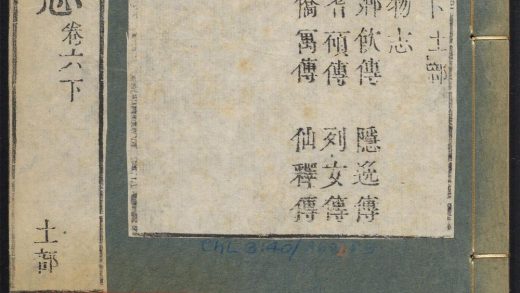 下土部
物志
鄉飲傳 隱逸傳
耆碩傳 列女傳
僑寓傳 仙釋傳
志 卷六下 土部